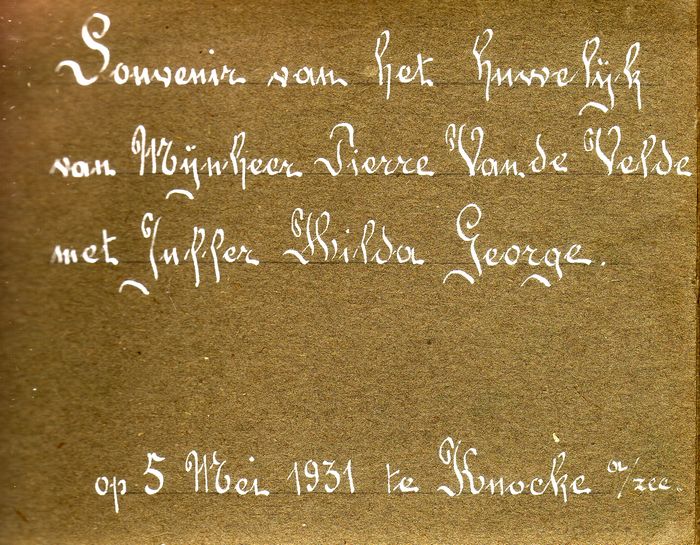 Souvenir van het huwelijk
van Mijnheer Pierre Van de Velde
met Juffer Wilda George.
op 5 Mei 1931 te Knocke a/zee.